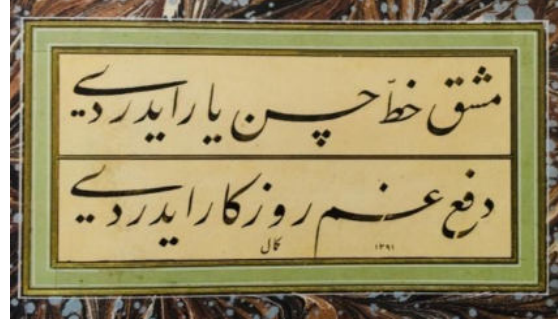 مشق خطّ حسن يار ايدردی
دفع غم روزكار ايدردی
۱۲۹۱
كمال